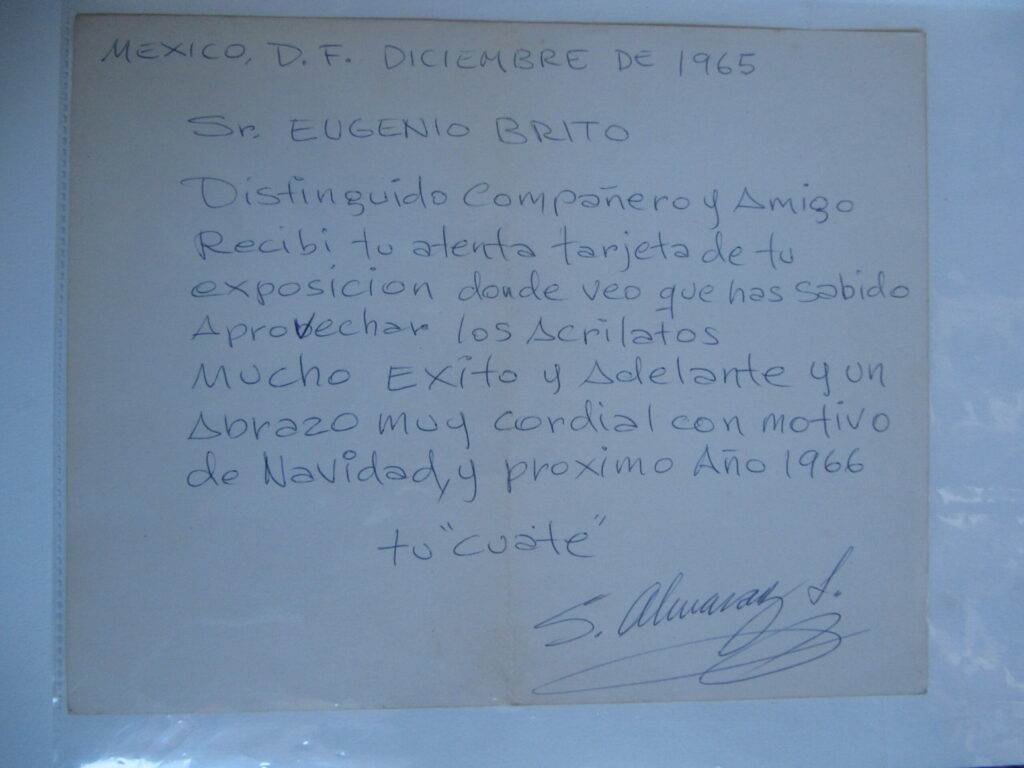 MEXICO, D.F. DICIEMBRE DE 1965
Sr. EUGENIO BRITO
Distinguido Compañero y Amigo
Recibi tu atenta tarjeta de tu
exposicion donde veo que has sabido
Aprovechar los Acrilatos
Mucho Exito y Adelante y un
Abrazo muy cordial con motivo
de Navidad, y proximo Año 1966
tu "cuate"
S. Almaraz L.